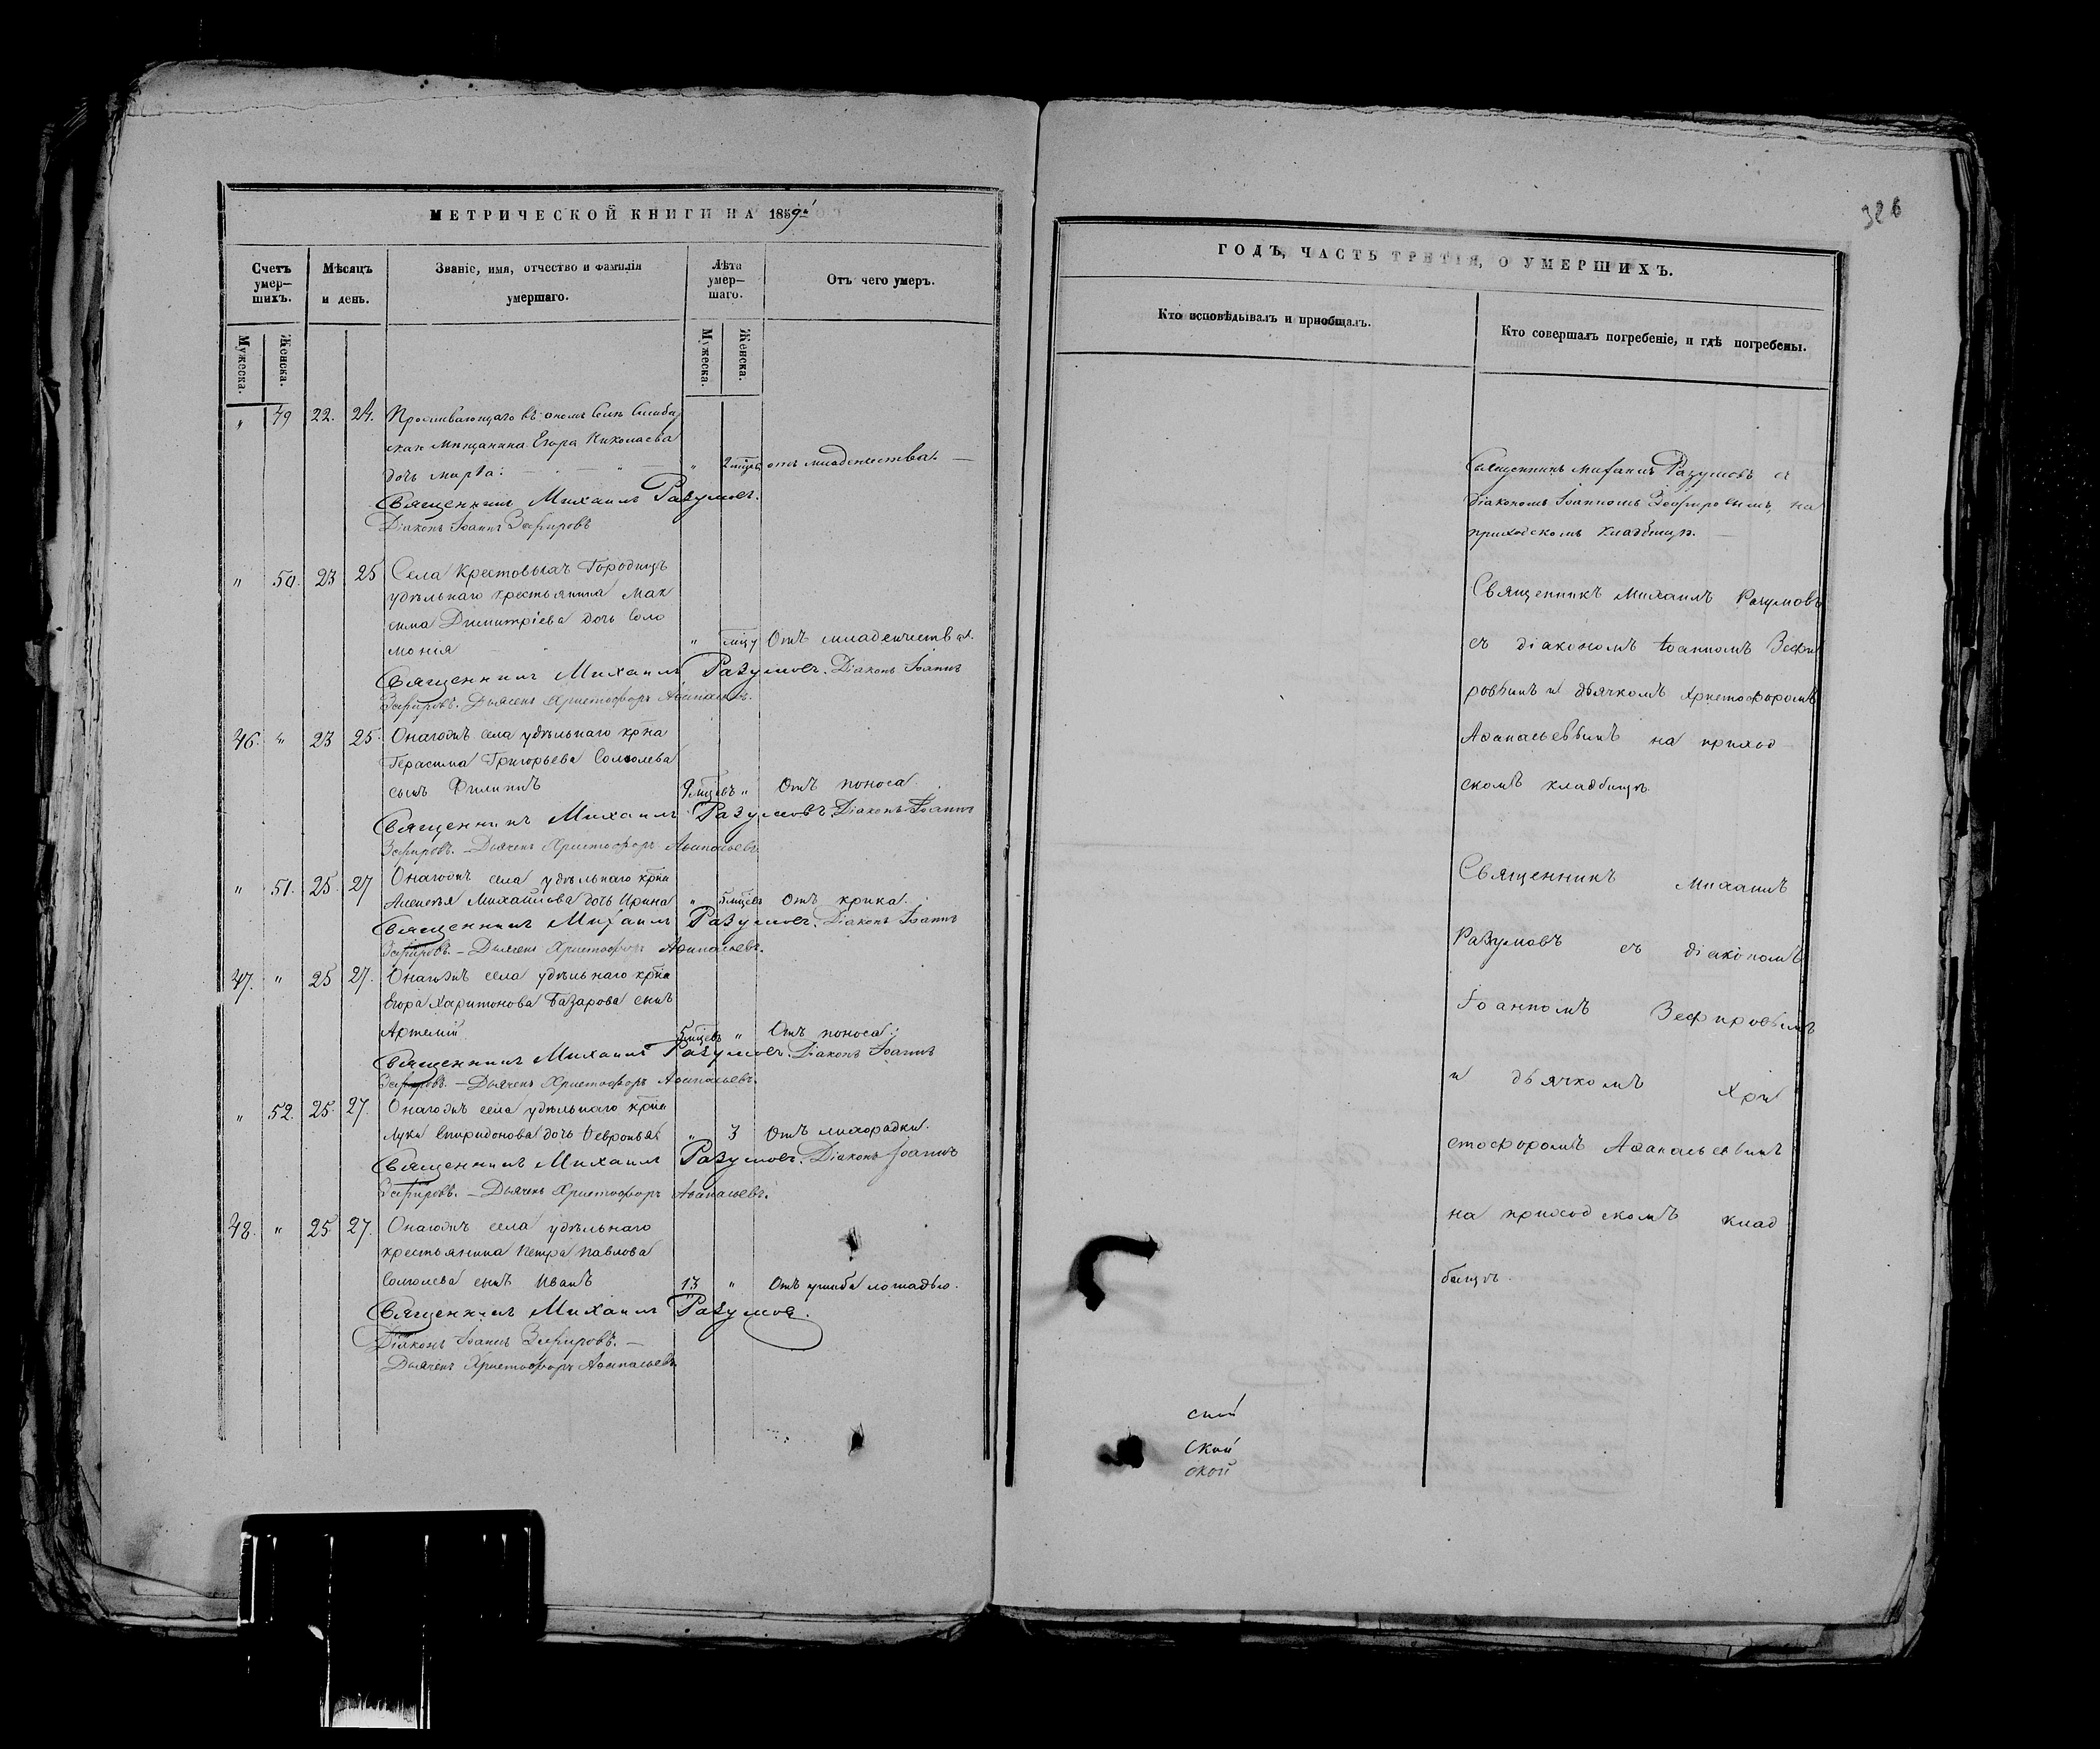 МЕТРИЧЕСКОЙ КНИГИ НА 1859й
Счетъ умер-шихъ.
Мѣсяцъ и день.
Званіе, имя, отчество и фамилія умершаго.
Лѣта умер-шаго.
Отъ чего умеръ.
Мужеска.
Женска.
Мужеска.
Женска.
„ 49 22. 24. Проживающаго въ ономъ селѣ
Мѣщанина Егора Николаева
дочь Марѳа: „ 2 мѣсцъ отъ младенчества. —
Священникъ Михаилъ Разумов.
Діаконъ Іоаннъ Зефировъ
„ 50. 23 25 Села Крестовыхъ Городищъ
удѣльнаго крестьянина Мак
сима Димитріева дочь Соло
монія „ Отъ младенчества.
Священникъ Михаилъ Разумовъ. Діаконъ Іоаннъ
Зефировъ. Дьячекъ Христофоръ Аѳанасьевъ.
46. „ 23 25. Онагожъ села удѣльнаго крѣна
Герасима Григорьева Солколева
сынъ Филиппъ 9 мѣсцевъ „ Отъ поноса
Священникъ Михаилъ Разумовъ. Діаконъ Іоаннъ
Зефировъ. — Дьячекъ Христофоръ Аѳанасьевъ
„ 51. 25. 27 Онагожъ села удѣльнаго крѣна
Алексѣя Михайлова дочь Ирина „ 5 мѣсцевъ Отъ крика.
Священникъ Михаилъ Разумовъ. Діаконъ Іоаннъ
Зефировъ. — Дьячекъ Христофоръ Аѳанасьевъ.
47. „ 25 27. Онагожъ села удѣльнаго крѣна
Егора Харитонова Базарова сынъ
Артемій 5 мѣсцевъ „ Отъ поноса.
Священникъ Михаилъ Разумовъ. Діаконъ Іоаннъ
Зефировъ. — Дьячекъ Христофоръ Аѳанасьевъ.
„ 52. 25. 27. Онагожъ села удѣльнаго крѣна
Луки Спиридонова дочь Февронья „ 3 Отъ лихорадки.
Священникъ Михаилъ Разумовъ. Діаконъ Іоаннъ
Зефировъ. — Дьячекъ Христофоръ Аѳанасьевъ.
48. „ 25 27. Онагожъ села удѣльнаго
крестьянина Петра Павлова
Солколева сынъ Иванъ 13 „ Отъ ушиба лошадью.
Священникъ Михаилъ Разумов.
Діаконъ Іоаннъ Зефировъ. —
Дьячекъ Христофоръ Аѳанасьевъ
326
ГОДЪ, ЧАСТЬ ТРЕТІЯ, О УМЕРШИХЪ.
Кто исповѣдывалъ и пріобщалъ.
Кто совершалъ погребеніе, и гдѣ погребены.
Священникъ Михаилъ Разумовъ съ
діакономъ Іоанномъ Зефировымъ, на
приходскомъ кладбищѣ. —
Священникъ Михаилъ Разумовъ
съ діакономъ Іоанномъ Зефи
ровымъ и дьячкомъ Христофоромъ
Аѳанасьевымъ на приход
скомъ кладбищѣ.
Священникъ Михаилъ
Разумовъ съ діакономъ
Іоанномъ Зефировымъ
и дьячкомъ Хри
стофоромъ Аѳанасьевымъ
на приходскомъ клад
бищѣ.
ской
ской